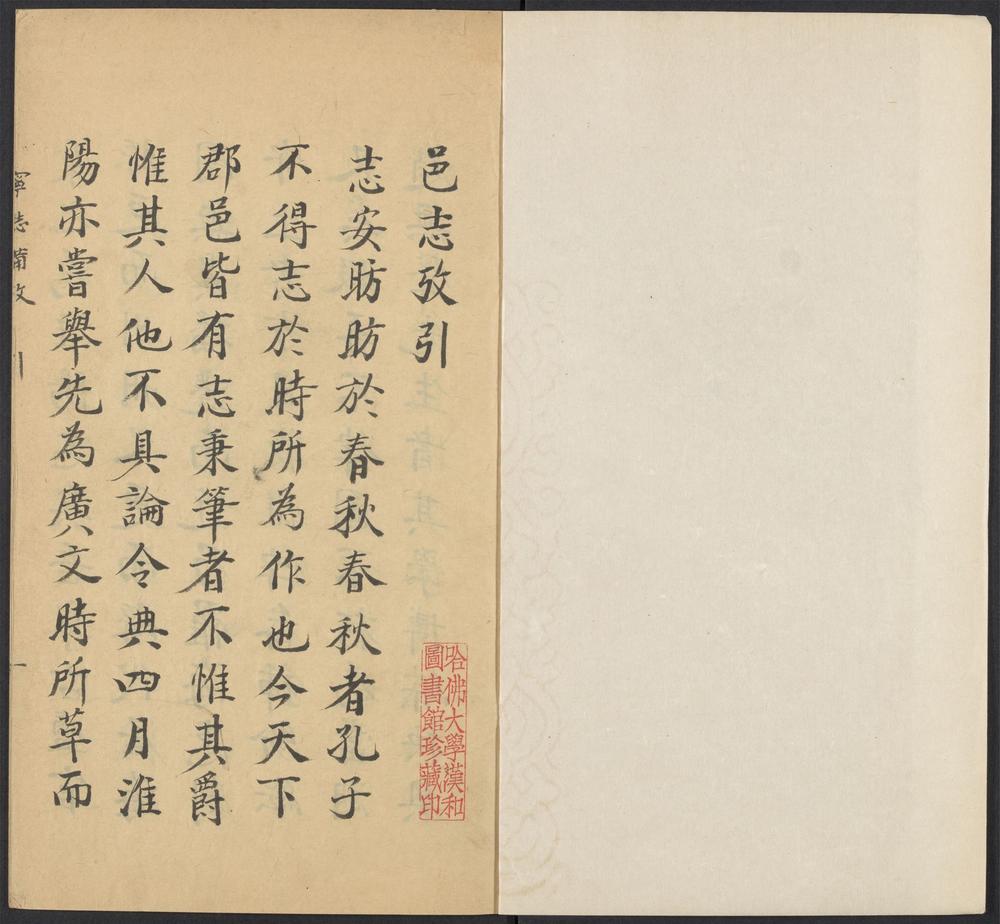 邑志攷引
志安昉昉於春秋春秋者孔子
不得志於時所為作也今天下
郡邑皆有志秉筆者不惟其爵
惟其人他不具論令典四月淮
陽亦嘗舉先為廣文時所草而
哈佛大學漢和
圖書館珍藏印
寧志備攷
引
一